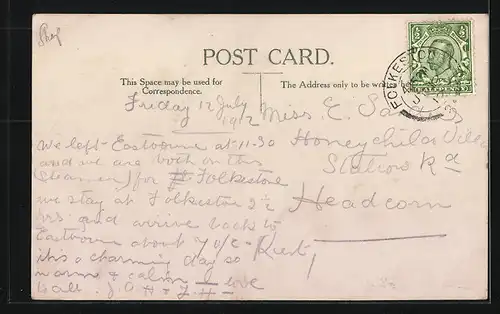 POST CARD.
This Space may be used for
Correspondence.
The Address only to be written
Friday 12 July
1912
We left Eastbourne at 11-30
and we are both on this
(steamer) for Folkestone
we stay at Folkestone 3½
hrs. and arrive back to
Eastbourne about 7 o/c
its a charming day so
warm & calm love
to all. J.A.H & J.H
Miss E.
Honeychild Villa
Station Rd
Headcorn
Kent
FOLKESTONE
HALFPENNY